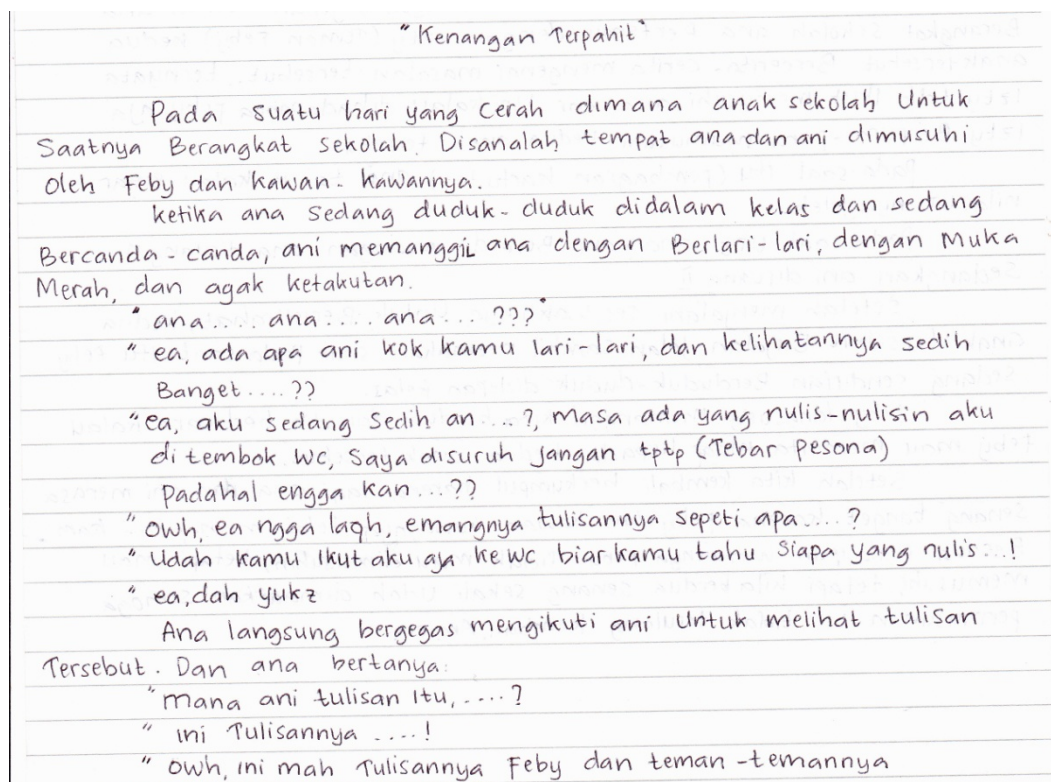 "Kenangan Terpahit"
Pada suatu hari yang cerah dimana anak sekolah untuk
Saatnya Berangkat sekolah. Disanalah tempat ana dan ani dimusuhi
oleh Feby dan kawan-kawannya.
ketika ana sedang duduk-duduk didalam kelas dan sedang
Bercanda-canda, ani memanggil ana dengan Berlari-lari, dengan Muka
Merah, dan agak ketakutan.
"ana.... ana.... ana....???"
"ea, ada apa ani kok kamu lari-lari, dan kelihatannya sedih
Banget....??
"ea, aku sedang sedih an....?, masa ada yang nulis-nulisin aku
di tembok WC, Saya disuruh jangan tptp (Tebar Pesona)
Padahal engga kan...??
"owh, ea ngga laqh, emangnya tulisannya sepeti apa....?
"Udah kamu ikut aku aja ke WC biar kamu tahu siapa yang nulis...!
"ea, dah yukz
Ana langsung bergegas mengikuti ani untuk melihat tulisan
Tersebut. Dan ana bertanya:
"mana ani tulisan itu,....?
"ini Tulisannya ....!
"owh, ini mah Tulisannya Feby dan teman-temannya